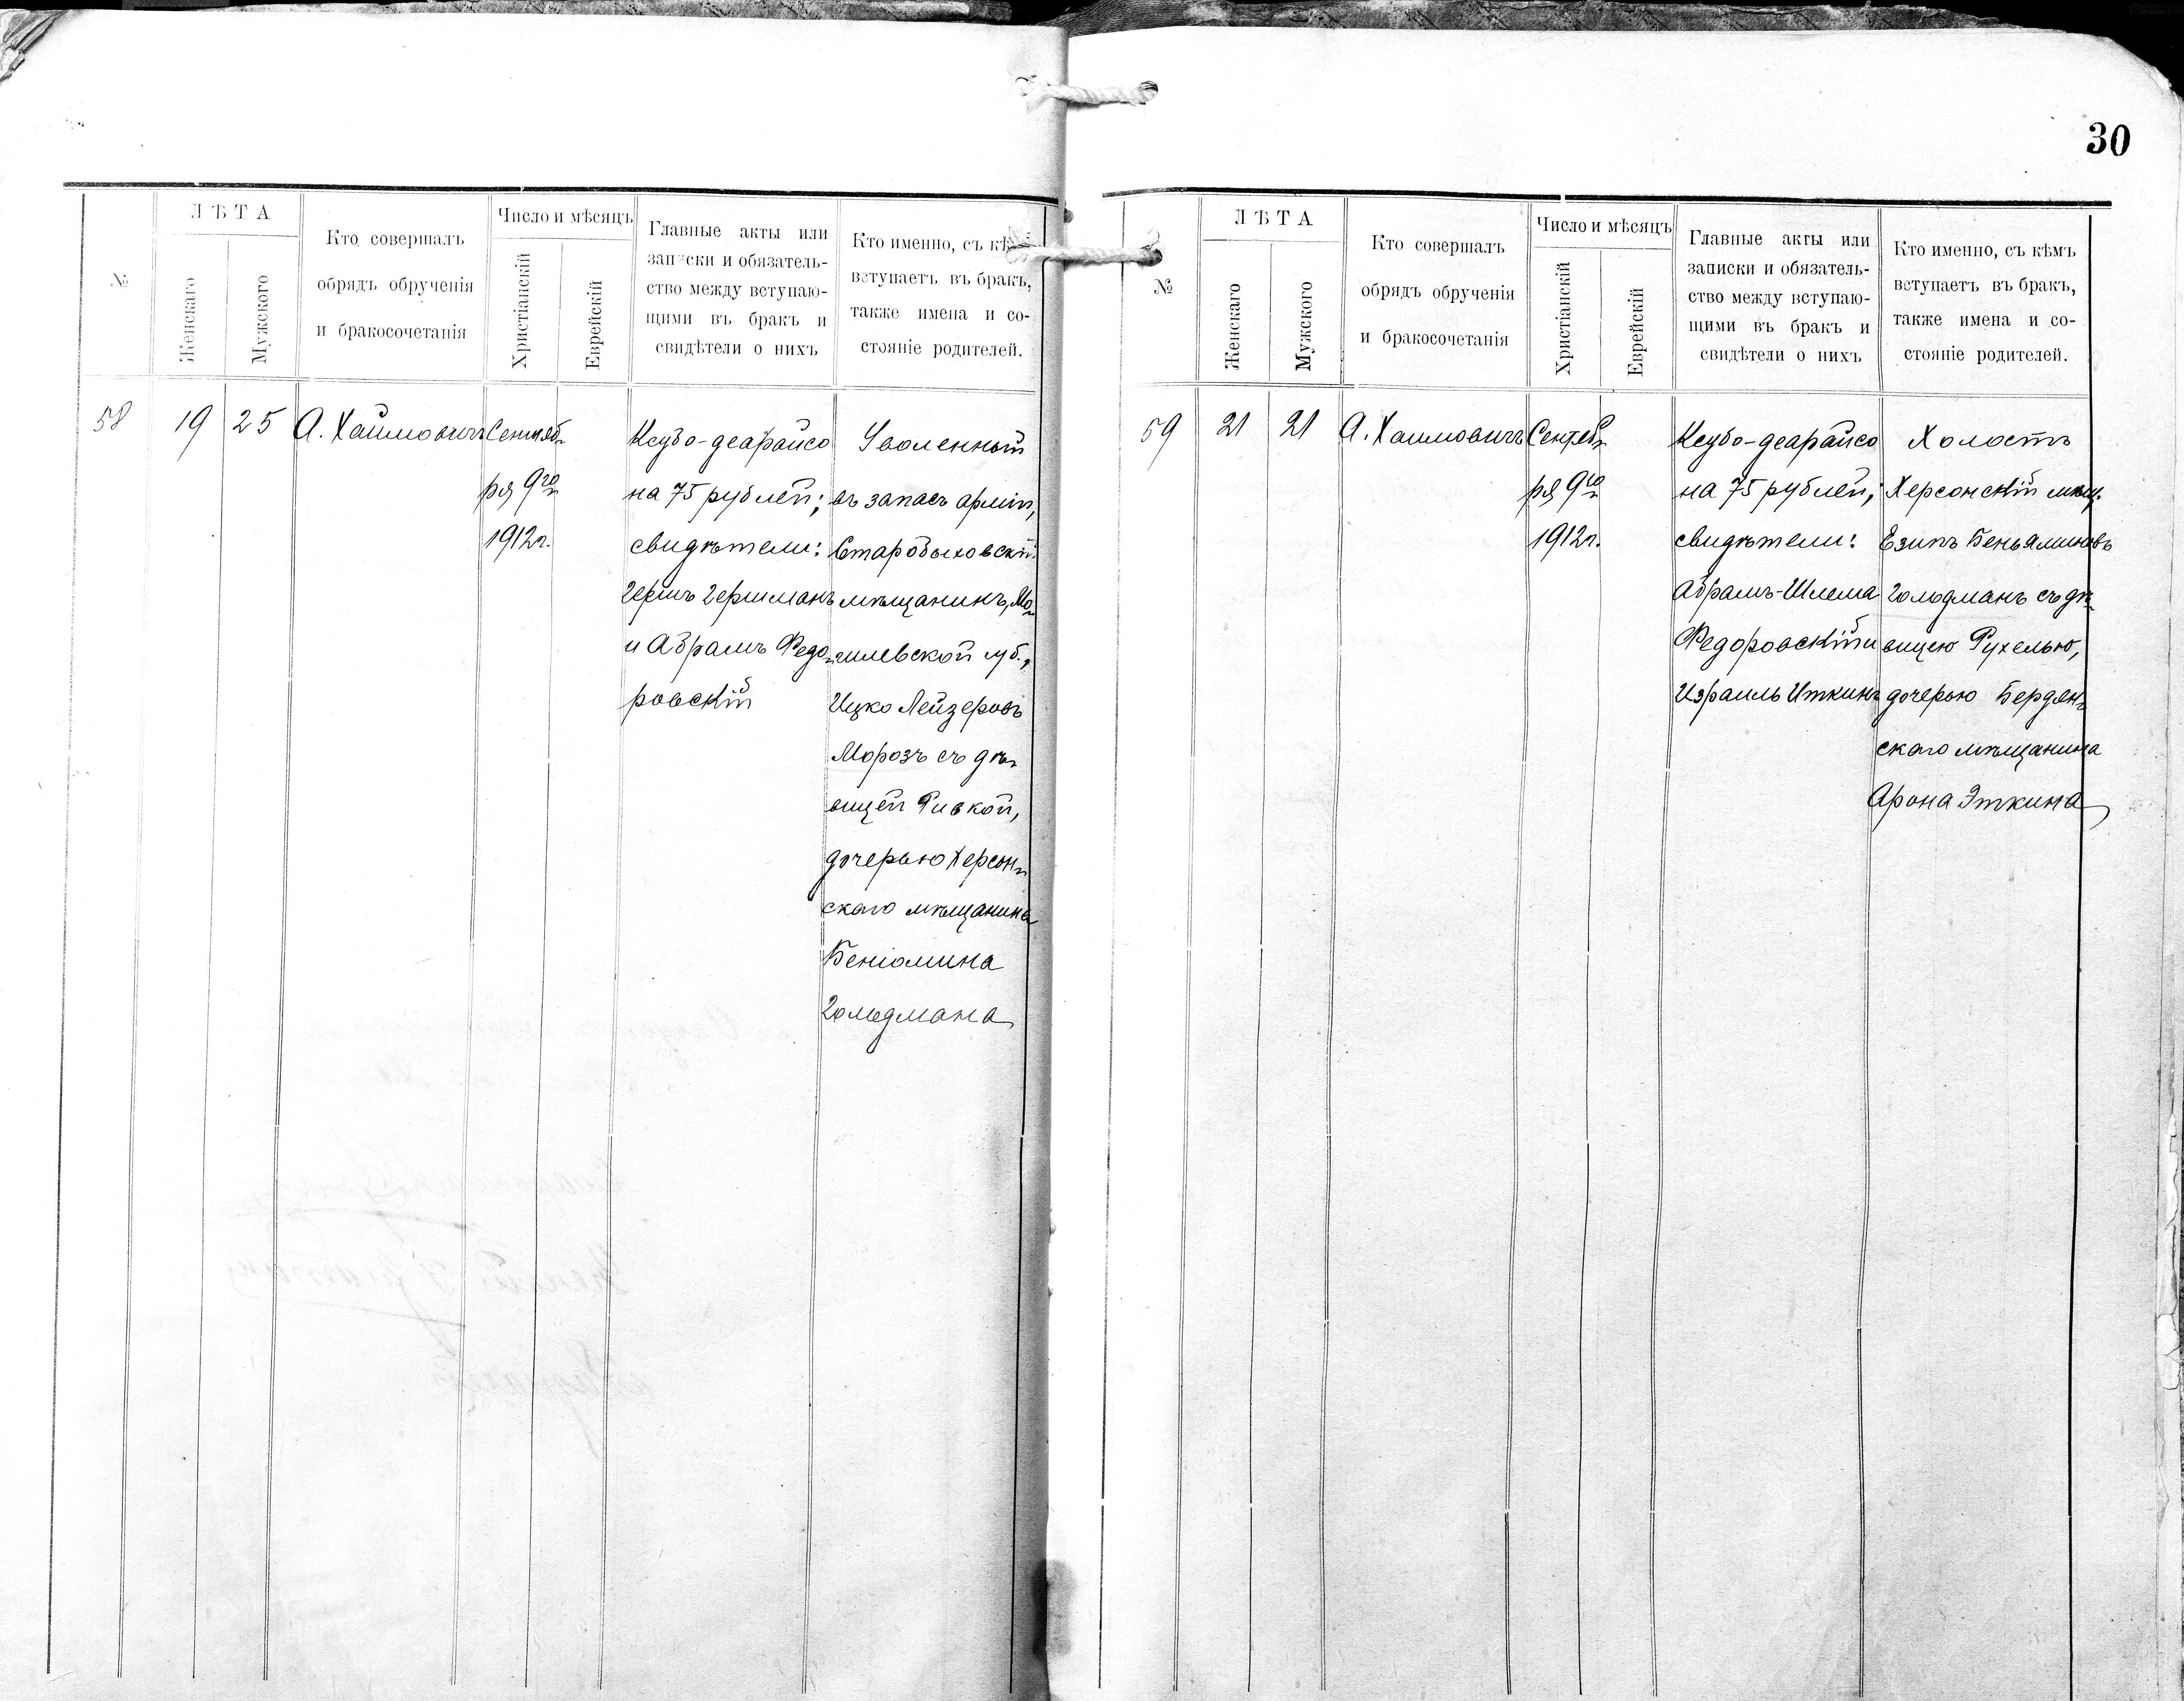 30
№
ЛѢТА
Женскаго
Мужского
Кто совершалъ
обрядъ обрученія
и бракосочетанія
Число и мѣсяцъ
Христіанскій
Еврейскій
Главные акты или
записки и обязатель-
ство между вступаю-
щими въ бракъ и
свидѣтели о нихъ
Кто именно, съ кѣ
вступаетъ въ бракъ,
также имена и со-
стояніе родителей.
58
19
25
А. Хаймовичъ
Сентяб-
ря 9го
1912г.
Ксубо-деарайсо
на 75 рублей;
свидѣтели:
Гершъ Гершманъ
и Абрамъ Федо-
ровскій
Уволенный
въ запасъ арміи,
Старобыховскій
мѣщанинъ, Мо-
гилевской губ.,
Ицко Лейзеровъ
Морозъ съ дѣ-
вицей Ривкой,
дочерью Херсон-
скаго мѣщанина
Беніомина
Гольдмана
№
ЛѢТА
Женскаго
Мужского
Кто совершалъ
обрядъ обрученія
и бракосочетанія
Число и мѣсяцъ
Христіанскій
Еврейскій
Главные акты или
записки и обязатель-
ство между вступаю-
щими въ бракъ и
свидѣтели о нихъ
Кто именно, съ кѣмъ
вступаетъ въ бракъ,
также имена и со-
стояніе родителей.
59
21
21
А. Хаимовичъ
Сентяб-
ря 9го
1912г.
Ксубо-деарайсо
на 75 рублей;
свидѣтели:
Абрамъ-Шлема
Федоровскій и
Израиль Иткинъ
Холостъ
Херсонскій мѣщ.
Езипъ Беньяминовъ
Гольдманъ съ дѣ-
вицею Рухелью,
дочерью Бердян-
скаго мѣщанина
Арона Эткина